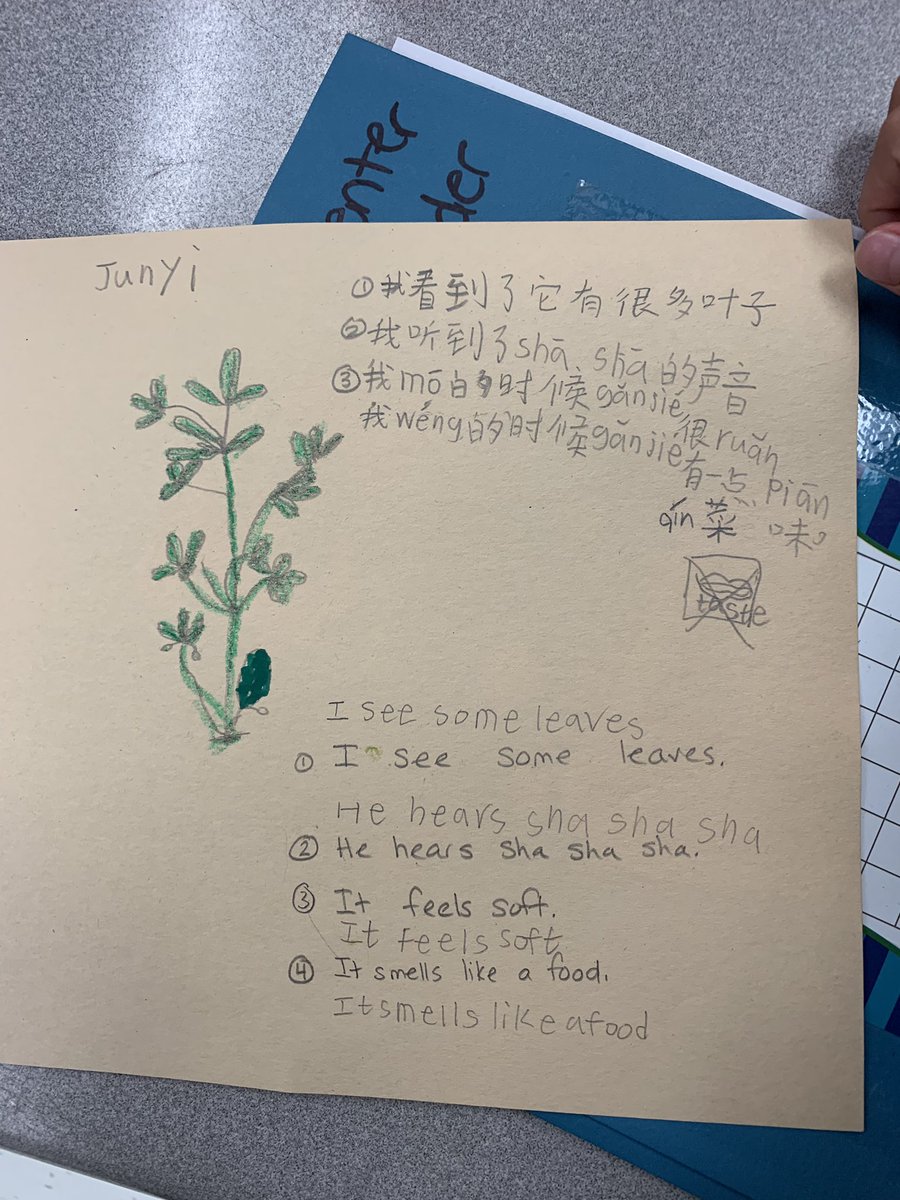 enter
der
Junyi
①我看到了它有很多叶子
②我听到了shā shā的声音
③我mō的时候gǎnjié很ruǎn
我wéng的时候gǎnjié有一点piān
qín菜味。
taste
I see some leaves
① I see some leaves.
He hears sha sha sha
② He hears sha sha sha.
③ It feels soft.
It feels soft
④ It smells like a food.
It smells like a food